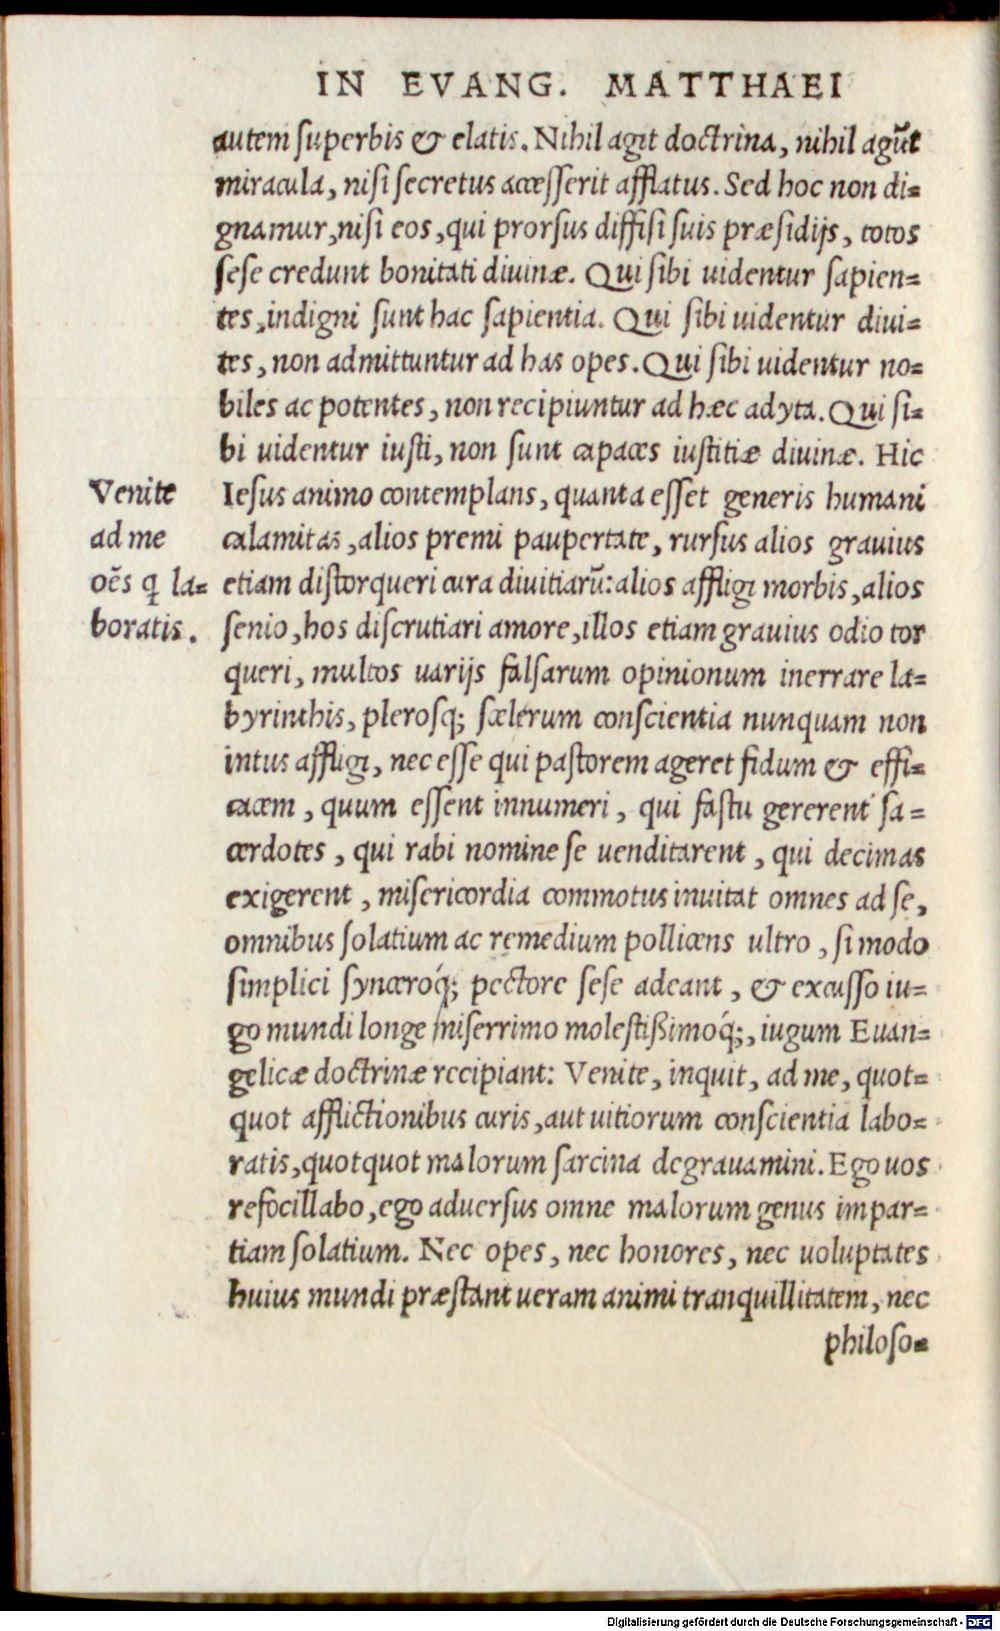 IN EVANG. MATTHAEI
autem ſuperbis & elatis. Nihil agit doctrina, nihil agũt
miracula, niſi ſecretus acceſſerit afflatus. Sed hoc non di=
gnamur, niſi eos, qui prorſus diffiſi ſuis præſidijs, totos
ſeſe credunt bonitati diuinæ. Qui ſibi uidentur ſapien=
tes, indigni ſunt hac ſapientia. Qui ſibi uidentur diui=
tes, non admittuntur ad has opes. Qui ſibi uidentur no=
biles ac potentes, non recipiuntur ad hæc adyta. Qui ſi=
bi uidentur iuſti, non ſunt capaces iuſtitiæ diuinæ. Hic
Venite
ad me
oẽs ꝗ la=
boratis.
Ieſus animo contemplans, quanta eſſet generis humani
calamitas, alios premi paupertate, rurſus alios grauius
etiam diſtorqueri cura diuitiarũ: alios affligi morbis, alios
ſenio, hos diſcrutiari amore, illos etiam grauius odio tor
queri, multos uarijs falſarum opinionum inerrare la=
byrinthis, pleroſq; ſcelerum conſcientia nunquam non
intus affligi, nec eſſe qui paſtorem ageret fidum & effi=
cacem, quum eſſent innumeri, qui faſtu gererent ſa=
cerdotes, qui rabi nomine ſe uenditarent, qui decimas
exigerent, miſericordia commotus inuitat omnes ad ſe,
omnibus ſolatium ac remedium pollicens ultro, ſi modo
ſimplici ſynceroq́; pectore ſeſe adeant, & excuſſo iu=
go mundi longe miſerrimo moleſtißimoq́;, iugum Euan=
gelicæ doctrinæ recipiant: Venite, inquit, ad me, quot=
quot afflictionibus curis, aut uitiorum conſcientia labo=
ratis, quotquot malorum ſarcina degrauamini. Ego uos
refocillabo, ego aduerſus omne malorum genus impar=
tiam ſolatium. Nec opes, nec honores, nec uoluptates
huius mundi præſtant ueram animi tranquillitatem, nec
philoſo=
Digitalisierung gefördert durch die Deutsche Forschungsgemeinschaft - DFG